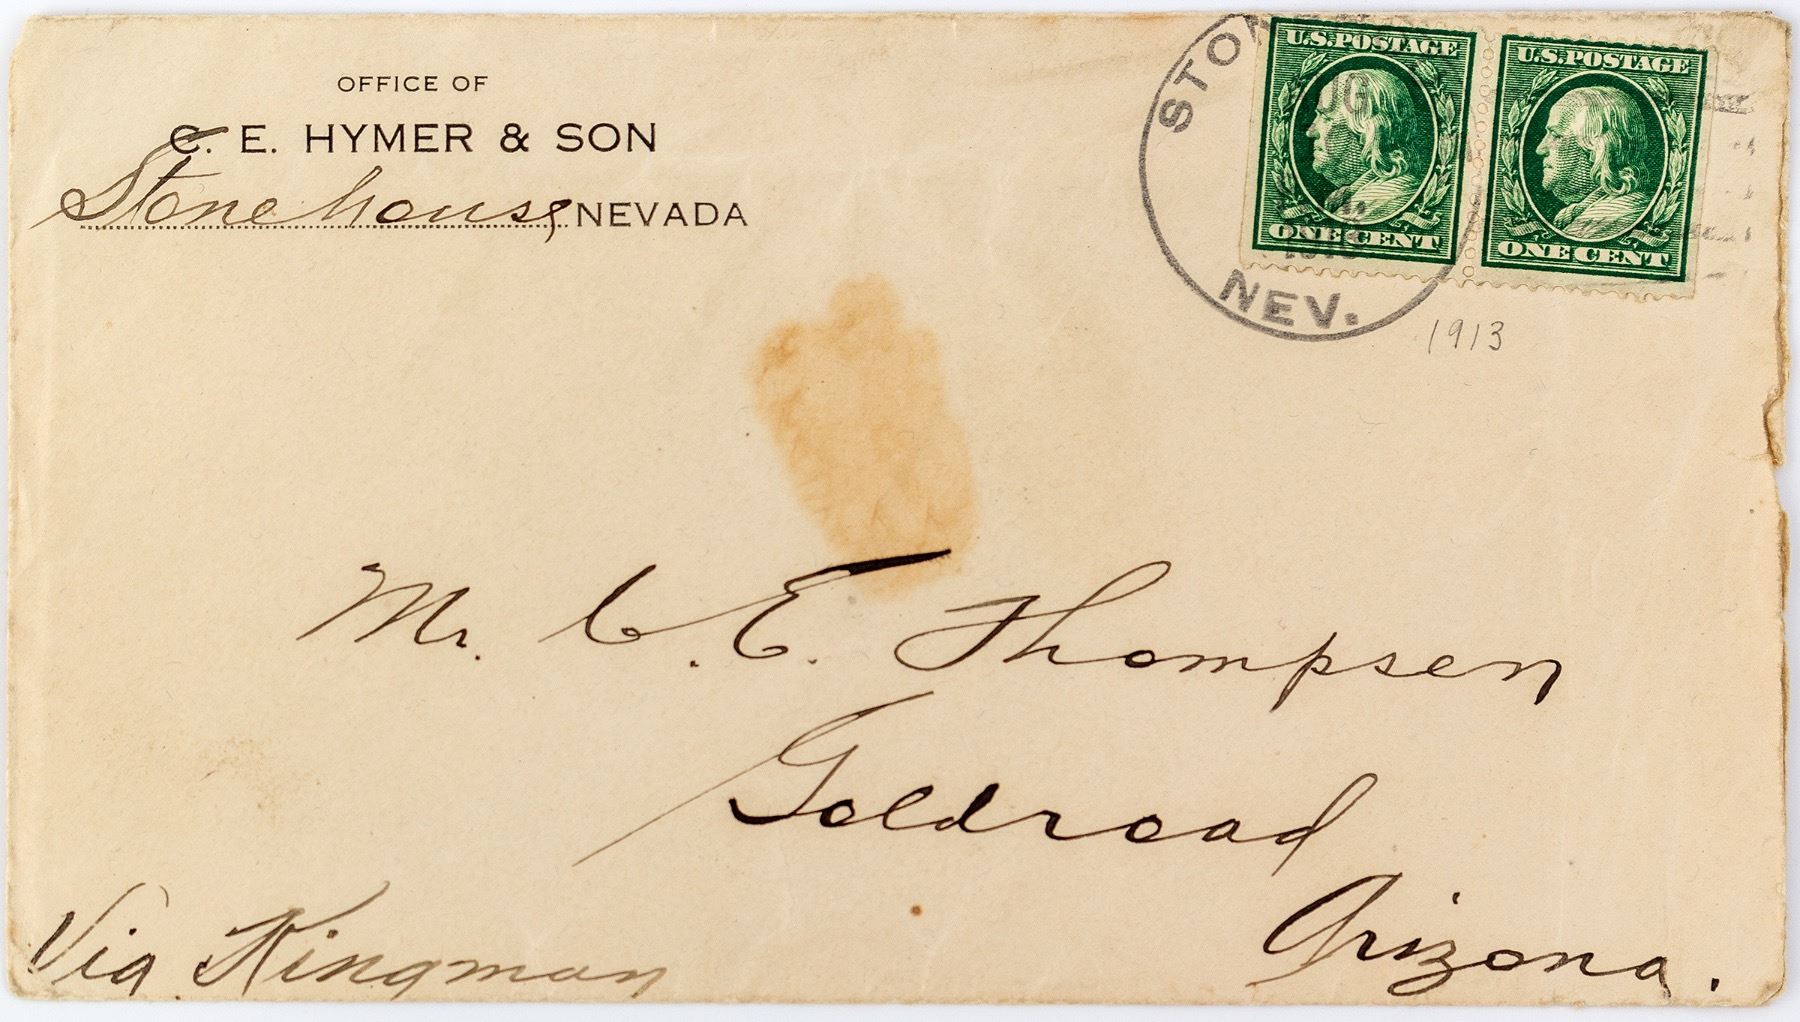 OFFICE OF
C. E. HYMER & SON
Stonehouse, NEVADA
STO
UG
NEV.
U.S.POSTAGE
ONE CENT
U.S.POSTAGE
ONE CENT
1913
Mr. C. E. Thompsen
Goldroad
Arizona.
Via Kingman